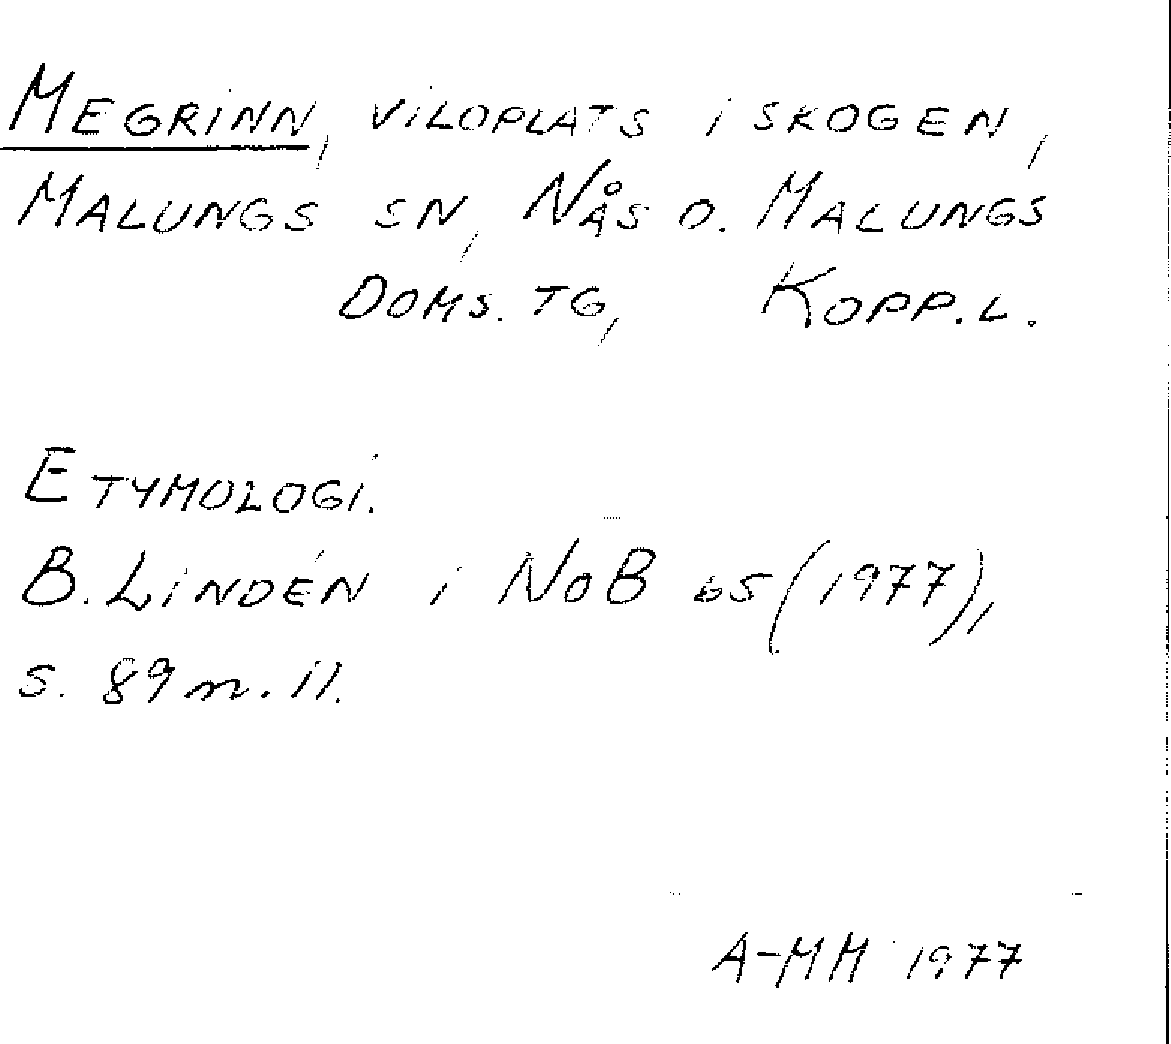 MEGRINN, VILOPLATS I SKOGEN,
MALUNGS SN, NÅS O. MALUNGS
DOMS. TG, KOPP. L.
ETYMOLOGI.
B. LINDÉN i NoB 65 (1977),
S. 89 n. 11.
A-MM 1977